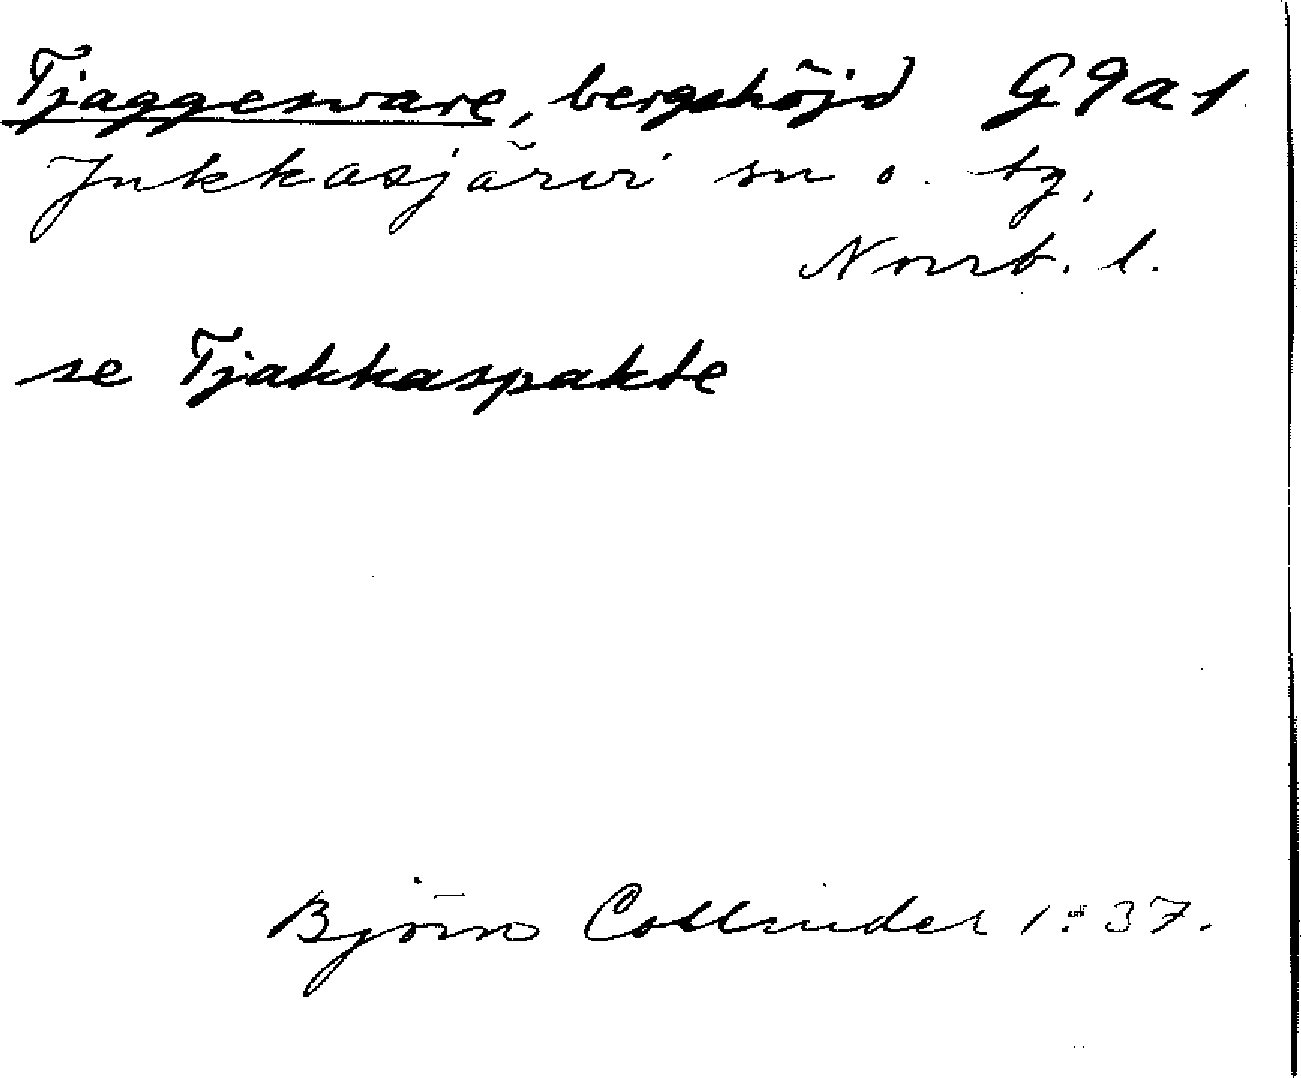 Tjaggesvare, bergshöjd G9a1
Jukkasjärvi sn o. tg,
Norrb. l.
se Tjakkaspakte
Björn Collinder 1:37.